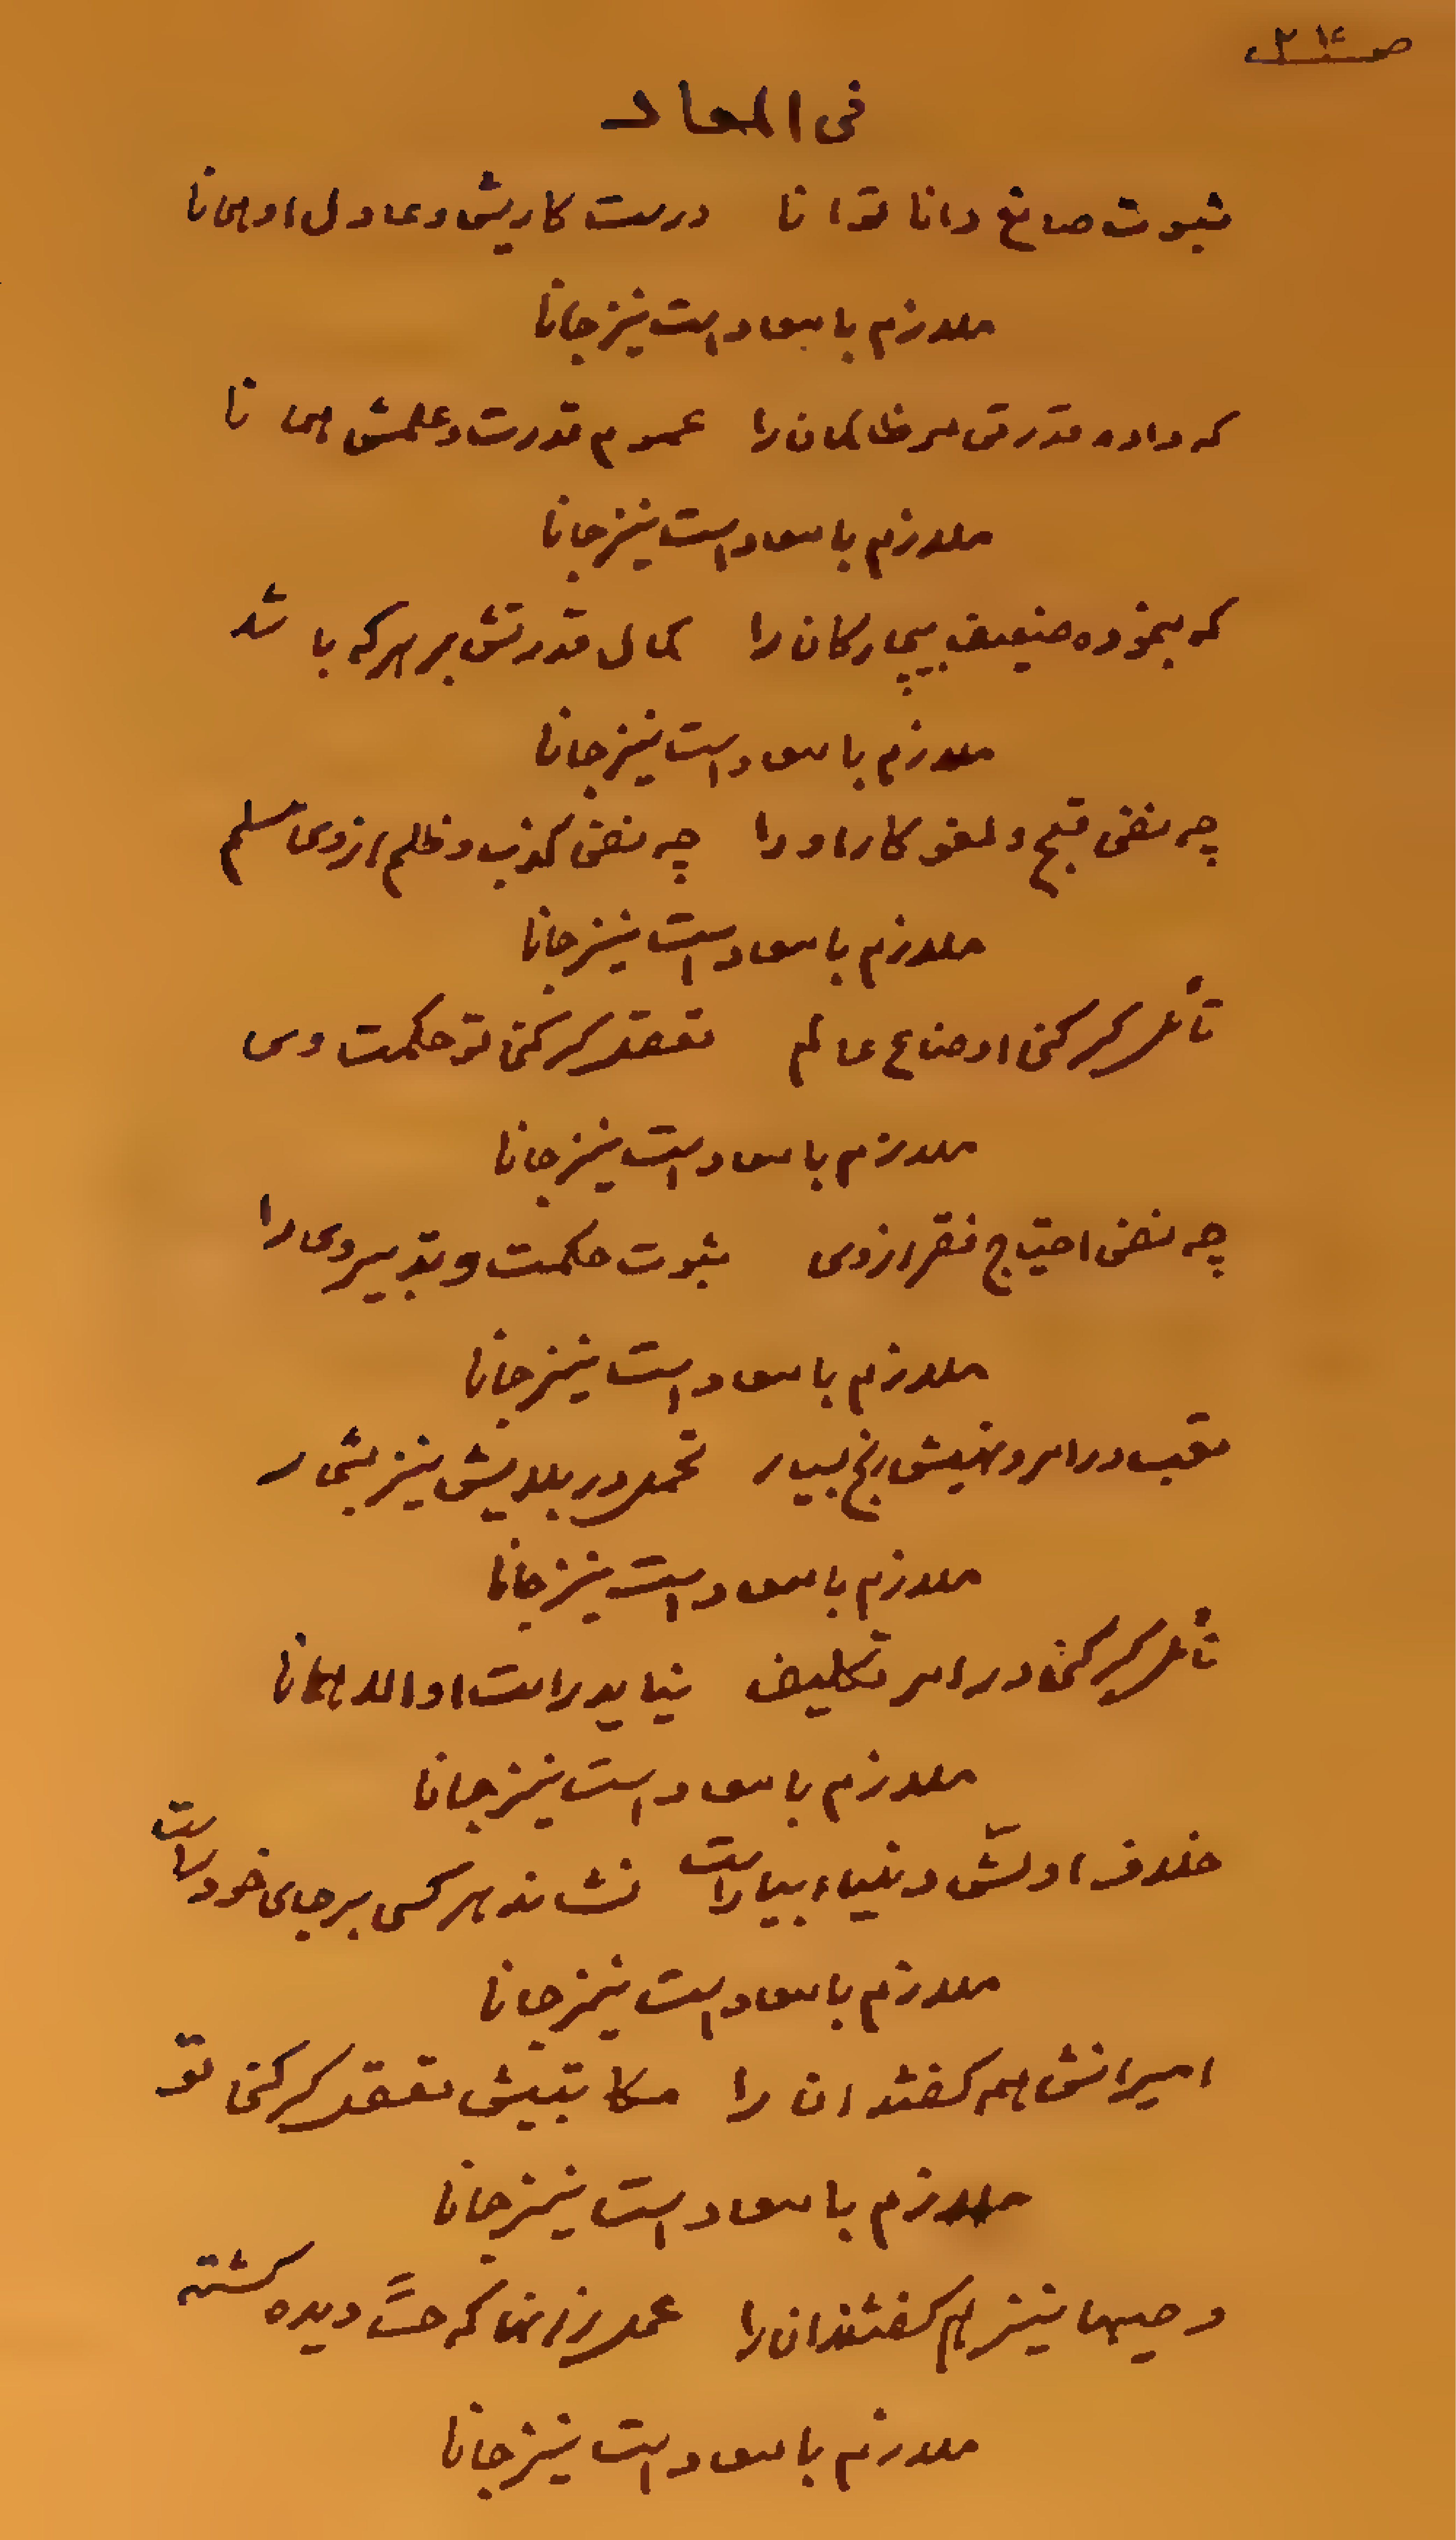 فی المعاد
ثبوت صانع دانا توانا درست کاریش و عادل او همانا
ملازم با معاد است نیز جانا
که داده قدرتی مر ظالمان را عموم قدرت و علمش همی نا
ملازم با معاد است نیز جانا
که بنموده ضعیف بیچارگان را کمال قدرتش بر هر که باشد
ملازم با معاد است نیز جانا
چه نفی قبح و لغو کار او را چه نفی کذب و ظلم از وی مسلم
ملازم با معاد است نیز جانا
تأمل گر کنی اوضاع عالم تعقل گر کنی تو حکمت وی
ملازم با معاد است نیز جانا
چه نفی احتیاج فقر از وی ثبوت حکمت و تدبیر وی را
ملازم با معاد است نیز جانا
تعب در امر و نهیش رنج بسیار تحمل در بلایش نیز بشمار
ملازم با معاد است نیز جانا
تأمل گر کنی در امر تکلیف نیاید راست او الا همانا
ملازم با معاد است نیز جانا
خلاف اولش دنیاء بیاراست نشاند هر کسی بر جای خود راست
ملازم با معاد است نیز جانا
امیرانش هم گفتند آن را مکاتیبش تعقل گر کنی تو
ملازم با معاد است نیز جانا
وصیها نیز هم گفتند آن را عمل زانها که حسا دیده گشته
ملازم با معاد است نیز جانا